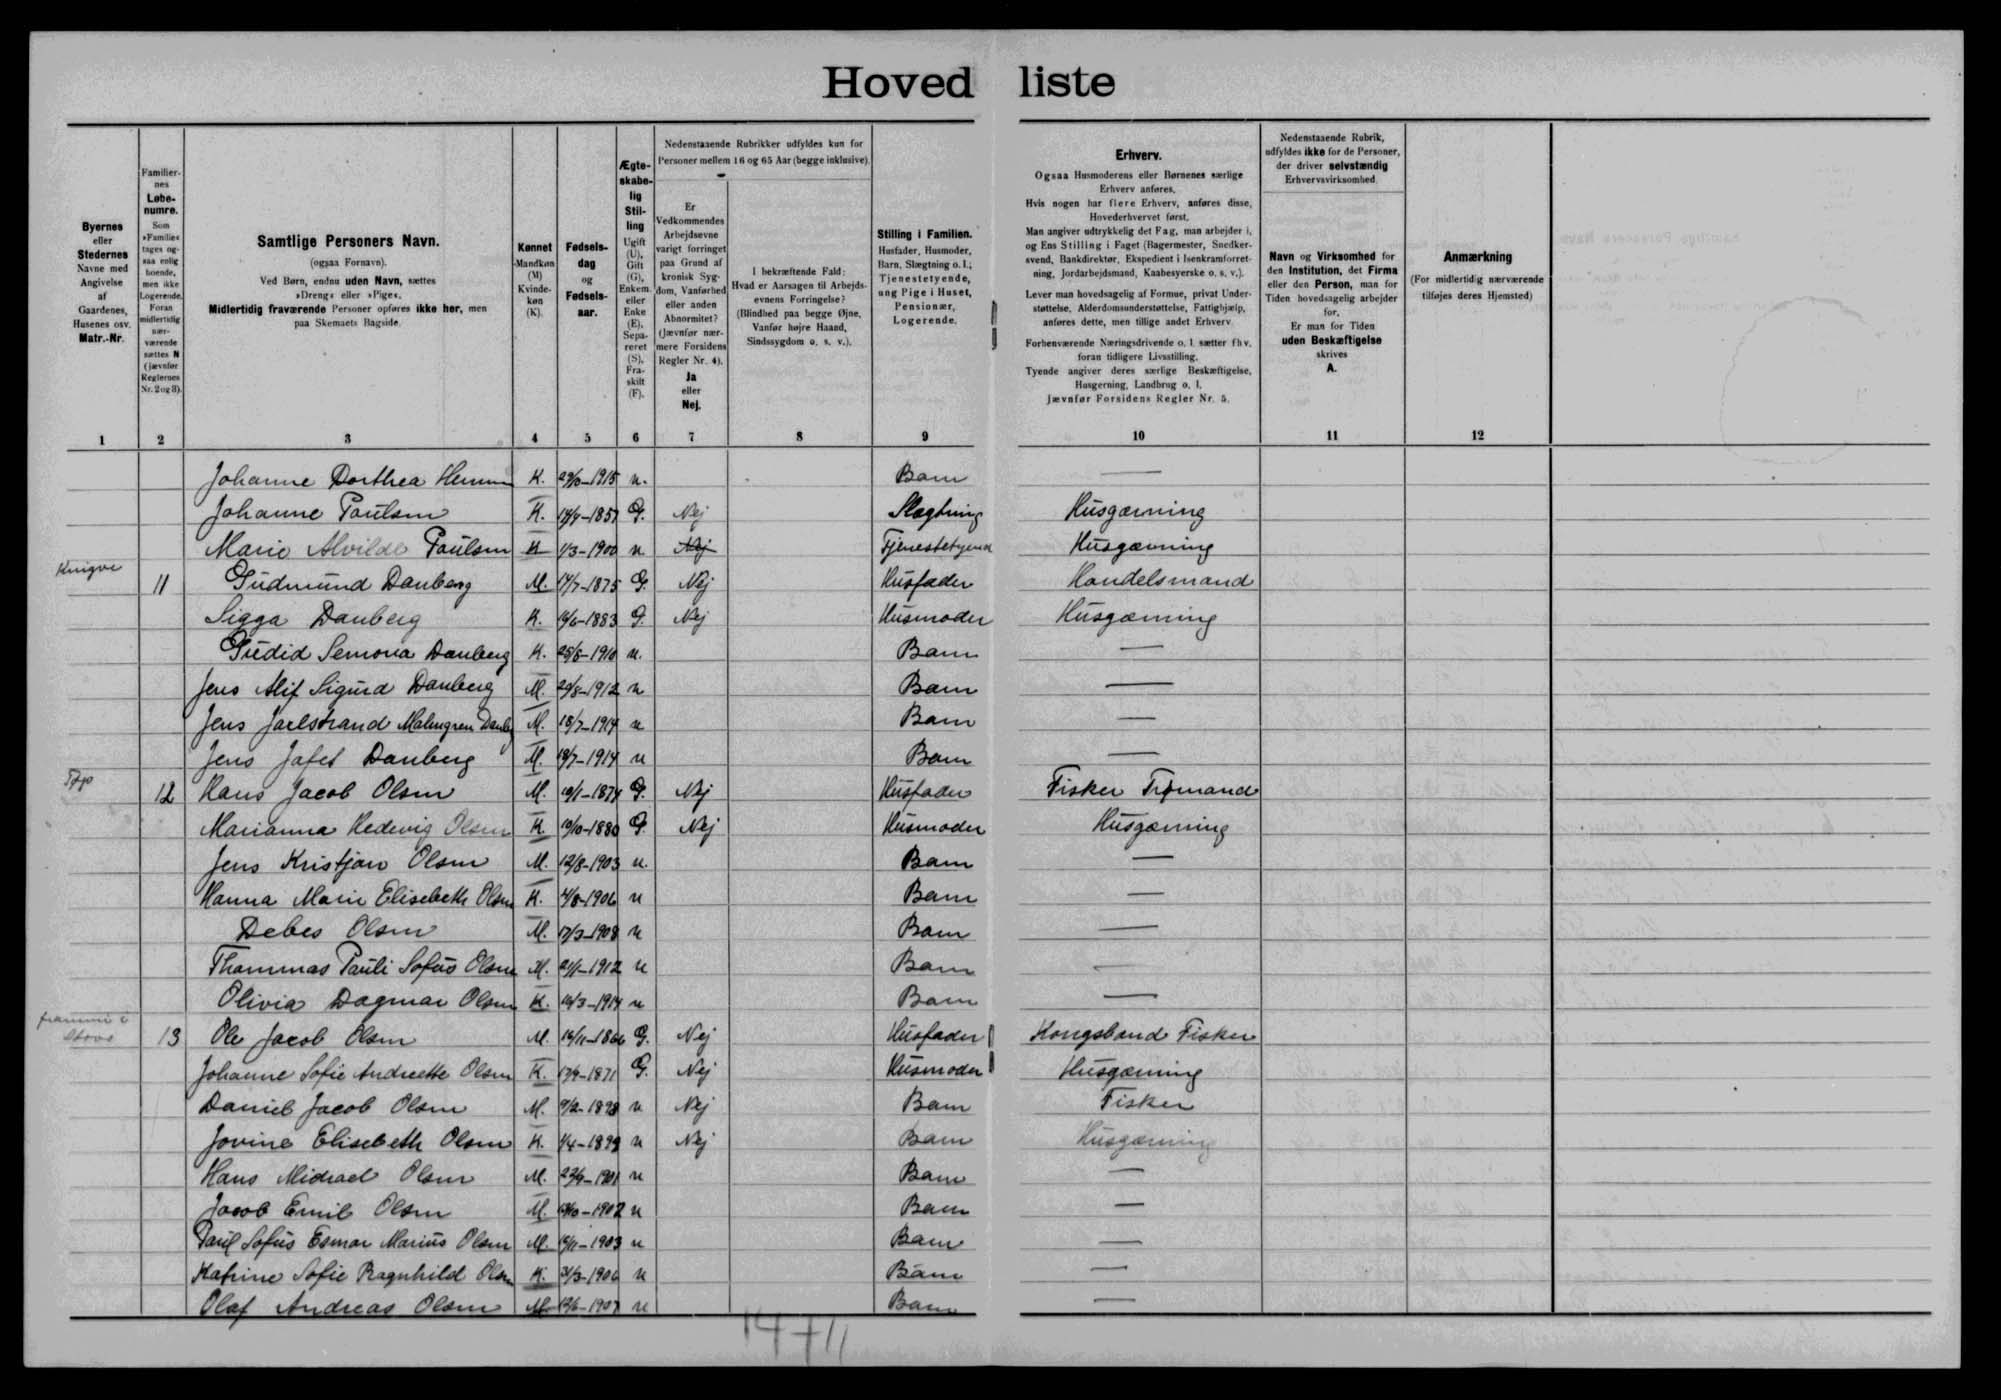 Hovedliste
Byernes
eller
Stedernes
Navne med
Angivelse
af
Gaardenes,
Husenes osv.
Matr.-Nr.
Familier-
nes
Løbe-
numre.
Som
»Familie«
tages og-
saa enlig
boende,
men ikke
Logerende.
Foran
midlertidig
nær-
værende
sættes N
(jævnfør
Reglernes
Nr. 2 og 3).
Samtlige Personers Navn.
(ogsaa Fornavn).
Ved Børn, endnu uden Navn, sættes
»Dreng« eller »Pige«.
Midlertidig fraværende Personer opføres ikke her, men
paa Skemaets Bagside.
Kønnet
Mandkøn
(M)
Kvinde-
køn
(K).
Fødsels-
dag
og
Fødsels-
aar.
Ægte-
skabe-
lig
Stil-
ling
Ugift
(U),
Gift
(G),
Enkem.
eller
Enke
(E),
Sepa-
reret
(S),
Fra-
skilt
(F).
Nedenstaaende Rubrikker udfyldes kun for
Personer mellem 16 og 65 Aar (begge inklusive).
Er
Vedkommendes
Arbejdsevne
varigt forringet
paa Grund af
kronisk Syg-
dom, Vanførhed
eller anden
Abnormitet?
(Jævnfør nær-
mere Forsidens
Regler Nr. 4).
Ja
eller
Nej.
I bekræftende Fald:
Hvad er Aarsagen til Arbejds-
evnens Forringelse?
(Blindhed paa begge Øjne,
Vanfør højre Haand,
Sindssygdom o. s. v.).
Stilling i Familien.
Husfader, Husmoder,
Barn, Slægtning o. l.;
Tjenestetyende,
ung Pige i Huset,
Pensionær,
Logerende.
Erhverv.
Ogsaa Husmoderens eller Børnenes særlige
Erhverv anføres.
Hvis nogen har flere Erhverv, anføres disse,
Hovederhvervet først.
Man angiver udtrykkelig det Fag, man arbejder i,
og Ens Stilling i Faget (Bagermester, Snedker-
svend, Bankdirektør, Ekspedient i Isenkramforret-
ning, Jordarbejdsmand, Kaabesyerske o. s. v.).
Lever man hovedsagelig af Formue, privat Under-
støttelse, Alderdomsunderstøttelse, Fattighjælp,
anføres dette, men tillige andet Erhverv.
Forhenværende Næringsdrivende o. l. sætter fhv.
foran tidligere Livsstilling.
Tyende angiver deres særlige Beskæftigelse,
Husgerning, Landbrug o. l.
Jævnfør Forsidens Regler Nr. 5.
Nedenstaaende Rubrik,
udfyldes ikke for de Personer,
der driver selvstændig
Erhvervsvirksomhed.
Navn og Virksomhed for
den Institution, det Firma
eller den Person, man for
Tiden hovedsagelig arbejder
for.
Er man for Tiden
uden Beskæftigelse
skrives
A.
Anmærkning
(For midlertidig nærværende
tilføjes deres Hjemsted)
1 2 3 4 5 6 7 8 9 10 11 12
Johanne Dorthea K. -1915 u. Barn —
Johanne Paulsen K. -1857 G. Nej Slægtning Husgærning
Marie Alvilde Paulsen K 1/3-1900 u Nej Tjenestetyende Husgærning
11 Gudmund Danberg M. 14/7-1875 G. Nej Husfader Handelsmand
Sigga Danberg K. -1883 G. Nej Husmoder Husgærning
Danberg K. 25/8-1910 u. Barn —
Jens Alif Sigurd Danberg M. -1912 u Barn —
Jens Jarlstrand Malmgren M. 18/7-1914 u Barn —
Jens Jafet Danberg M. 18/7-1914 u Barn —
12 Hans Jacob Olsen M. -1874 G. Nej Husfader Fisker Trømand
Marianna Hedevig Olsen K. 10/10-1880 G. Nej Husmoder Husgærning
Jens Kristjan Olsen M. 12/8-1903 u. Barn —
Hanna Marie Elisebeth Olsen K. 4/8-1906 u Barn —
Debes Olsen M. 17/3-1908 u Barn —
Thommas Pauli Sofus Olsen M. 21/1-1912 u Barn —
Olivia Dagmar Olsen K. 16/3-1914 u Barn —
13 Ole Jacob Olsen M. 14/11-1866 G. Nej Husfader Kongsbond Fisker
Johanne Sofie Andreette Olsen K. 17/9-1871 G. Nej Husmoder Husgærning
Daniel Jacob Olsen M. 9/2-1898 u Nej Barn Fisker
Jovine Elisebeth Olsen K. 1/4-1899 u Nej Barn Husgærning
Hans Michael Olsen M. -1901 u Barn —
Jacob Emil Olsen M. -1902 u Barn —
Paul Sofus Esmar Marius Olsen M. -1903 u Barn —
Katrine Sofie Ragnhild Olsen K. 31/3-1906 u Barn —
Olaf Andreas Olsen M -1907 u Barn —
14+11